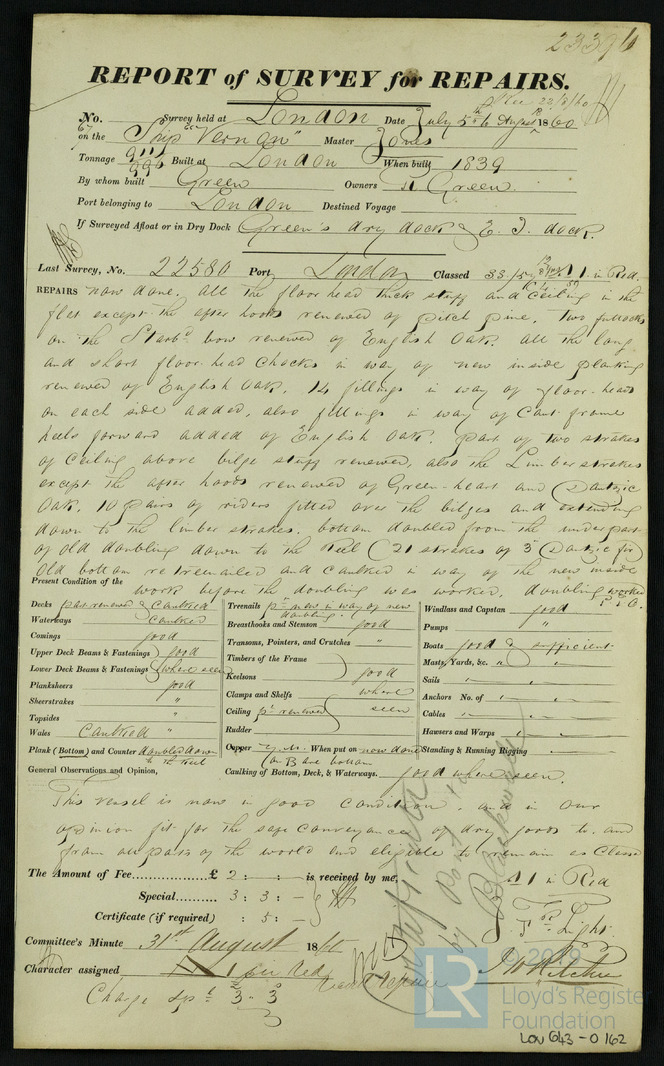 REPORT of SURVEY for REPAIRS.
No. Survey held at London Date July 5th to August 1860
67
on the Ship "Vernon" Master Jones
Tonnage 911
996 Built at London When built 1839
By whom built Green Owners R. Green
Port belonging to London Destined Voyage
If Surveyed Afloat or in Dry Dock Green's dry dock & E. I. dock.
Last Survey, No. 22580 Port London Classed A 1 in Red
REPAIRS now done. All the floor head thick stuff and Ceiling in the
flat except the after hoods renewed of pitch pine, two futtocks
on the Starbd bow renewed of English Oak. All the long
and short floor-head chocks in way of new inside planking
renewed of English Oak. 14 fillings in way of floor-heads
on each side added, also fillings in way of Cant frame
heels forward added of English Oak. part of two strakes
of Ceiling above bilge stuff renewed, also the Limber strakes
except the after hoods renewed of Green-heart and Dantzic
Oak. 10 pairs of riders fitted over the bilges and extending
down to the limber strakes. bottom doubled from the under part
of old doubling down to the Keel (21 strakes of 3 Dantzic fir
Old bottom retreenailed and caulked in way of the new inside
work before the doubling was worked. doubling worked
Present Condition of the
Decks part renewed & Caulked
Waterways Caulked
Comings good
Upper Deck Beams & Fastenings good
Lower Deck Beams & Fastenings where seen
Planksheers good
Sheerstrakes "
Topsides "
Wales Caulked "
Plank (Bottom) and Counter doubled down
to the Keel
Treenails pt new in way of new
doubling.
Breasthooks and Stemson good
Transoms, Pointers, and Crutches "
Timbers of the Frame
Keelsons good
Clamps and Shelfs where
Ceiling pt renewed seen
Rudder
Copper Y.M. When put on now done
on Bare bottom
Caulking of Bottom, Deck, & Waterways. good where seen.
Windlass and Capstan good
Pumps "
Boats good & sufficient
Masts, Yards, &c. " "
Sails " "
Anchors No. of " "
Cables " "
Hawsers and Warps " "
Standing & Running Rigging " "
General Observations and Opinion,
This vessel is now in good condition, and in our
opinion fit for the safe conveyance of dry goods to and
from all parts of the world and eligible to remain as Classed
A 1 in Red
The Amount of Fee £ 2 : - : - is received by me,
Special 3 : 3 : -
Certificate (if required) : 5 : -
Committee's Minute 31st August 1860
Character assigned A 1 in Red
Charge Spl 3 : 3
Light
Jn Ritchie
© 2019
LR
Lloyd's Register
Foundation
LON 643-0162